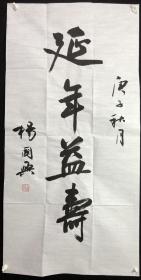 庚子秋月
延年益壽
楊國興